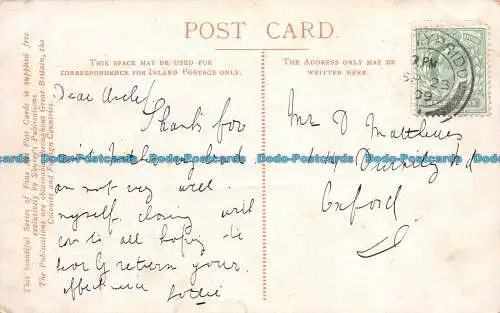 POST CARD.
THIS SPACE MAY BE USED FOR
CORRESPONDENCE FOR INLAND POSTAGE ONLY.
THE ADDRESS ONLY MAY BE
WRITTEN HERE.
This beautiful Series of Fine Art Post Cards is supplied free
exclusively by Shurey's Publications.
The Publications are obtainable throughout Great Britain, the
Colonies and Foreign Countries.
Dear Uncle
Thanks for
am not very well
myself. closing with
love to all hoping to
hear by return your
affectionate
Lottie
Mr D Matthews
Divinity Rd
Oxford
7 PM
SP 23
09
Dodo-Postcards Dodo-Postcards Dodo-Postcards Dodo-Postcards Dodo-Postcards